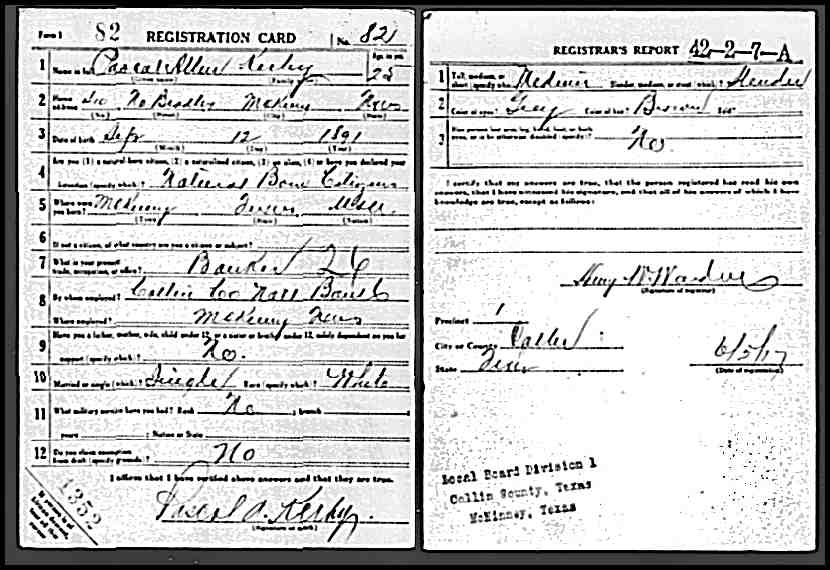 Form 1 82 REGISTRATION CARD No. 821
1 Name in full Pascal Allen Kerby Age, in yrs. 25
(Given name) (Family name)
2 Home address No Bradley McKinney Texas
(No.) (Street) (City) (State)
3 Date of birth Sept 12 1891
(Month) (Day) (Year)
4 Are you (1) a natural-born citizen, (2) a naturalized citizen, (3) an alien, (4) or have you declared your
intention (specify which)? Natural Born Citizen
5 Where were you born? McKinney Texas USA
(Town) (State) (Nation)
6 If not a citizen, of what country are you a citizen or subject?
7 What is your present trade, occupation, or office? Banker 26
8 By whom employed? Collin Co Natl Bank
Where employed? McKinney Texas
9 Have you a father, mother, wife, child under 12, or a sister or brother under 12, solely dependent on you for
support (specify which)? No.
10 Married or single (which)? Single Race (specify which)? White
11 What military service have you had? Rank No ; branch
years ; Nation or State
12 Do you claim exemption from draft (specify grounds)? No
I affirm that I have verified above answers and that they are true.
1352
Pascal A. Kerby.
(Signature or mark)
REGISTRAR'S REPORT 42-2-7-A
1 Tall, medium, or short (specify which)? Medium Slender, medium, or stout (which)? Slender
2 Color of eyes? Grey Color of hair? Brown Bald?
3 Has person lost arm, leg, hand, foot, or both eyes, or is he otherwise disabled (specify)? No.
I certify that my answers are true, that the person registered has read his own
answers, that I have witnessed his signature, and that all of his answers of which I have
knowledge are true, except as follows:
(Signature of registrar)
Precinct 1
City or County Collin
State Texas
6/5/17
(Date of registration)
Local Board Division 1
Collin County, Texas
McKinney, Texas